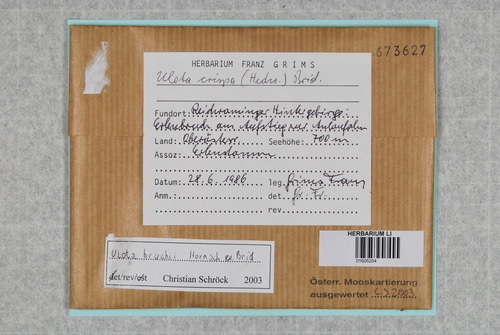 673627
HERBARIUM FRANZ GRIMS
Ulota crispa (Hedw.) Brid.
Fundort: Reichraminger Hintergebirge:
am Aufstieg zur
Land: Oberösterr. Seehöhe: 700 m
Assoz:
Datum: 28.6.1986 leg. Grims Franz
Anm.: det. Gr. Fr.
rev.
Ulota bruchii Hornsch. ex Brid.
det/rev/ost Christian Schröck 2003
HERBARIUM LI
01605204
Österr. Mooskartierung
ausgewertet CS 2003